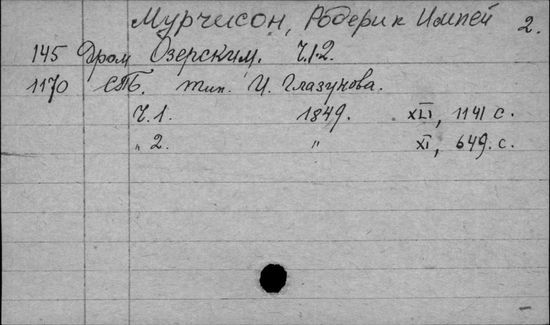 Мурчисон, Родерик Импей 2.
145 Дром Озерским. Ч.1-2.
1170 СПБ. тип. И. Глазунова.
Ч.1. 1849. XLI, 1141 с.
„ 2. „ XI, 649. с.